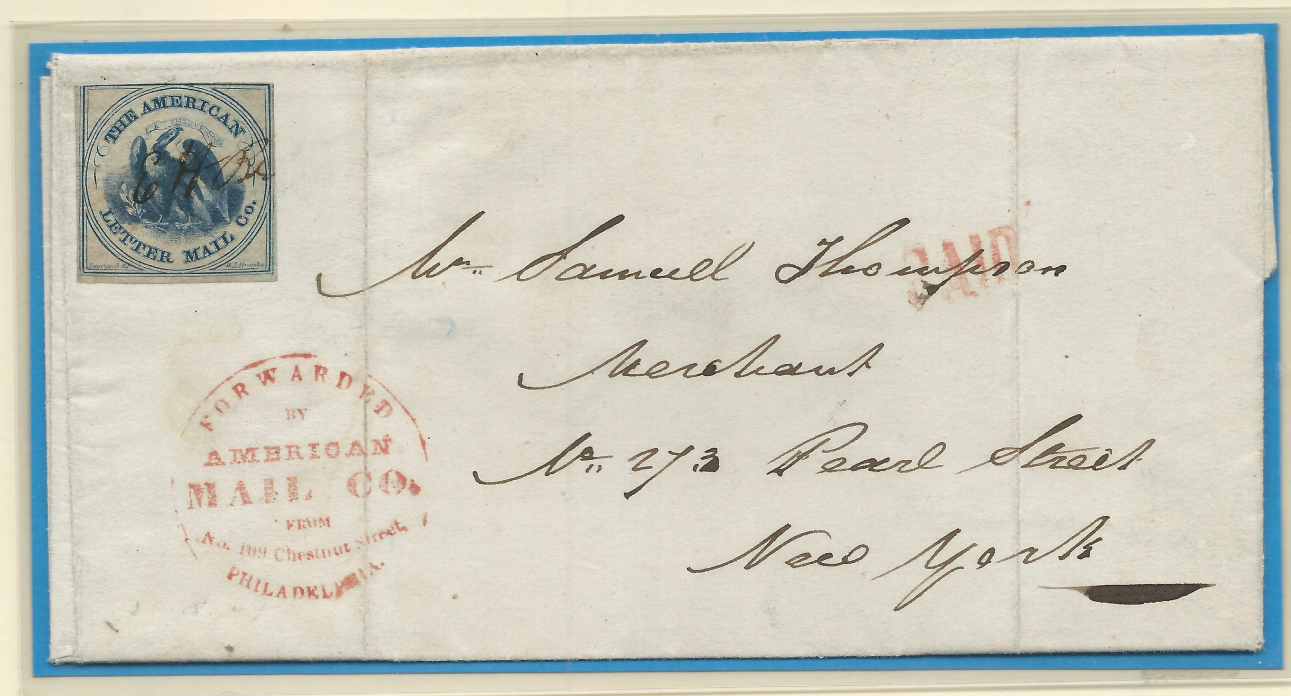 THE AMERICAN
LETTER MAIL CO.
PAID
Mr. Samuel Thompson
Merchant
No. 273 Pearl Street
New York
FORWARDED
BY
AMERICAN
MAIL CO.
FROM
No. 109 Chestnut Street,
PHILADELPHIA.